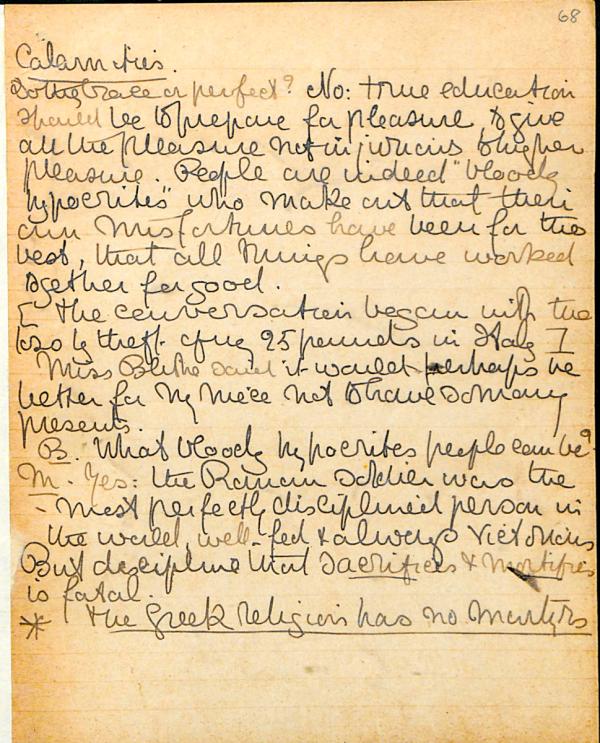 68
Calamities.
Do they brace or perfect? No: true education
should be to prepare for pleasure, to give
all the pleasure not injurious to higher
pleasure. People are indeed "bloody
hypocrites" who make out that their
own misfortunes have been for the
best, that all things have worked
together for good.
[ The conversation began with the
loss by theft of my 25 pounds in Italy ]
Miss Blythe said it would perhaps be
better for my niece not to have so many
presents.
B. What bloody hypocrites people can be?
M. Yes: the Roman soldier was the
- most perfectly disciplined person in
the world, well-fed & always victorious
But discipline that sacrifices & mortifies
is fatal.
* The Greek religion has no Martyrs